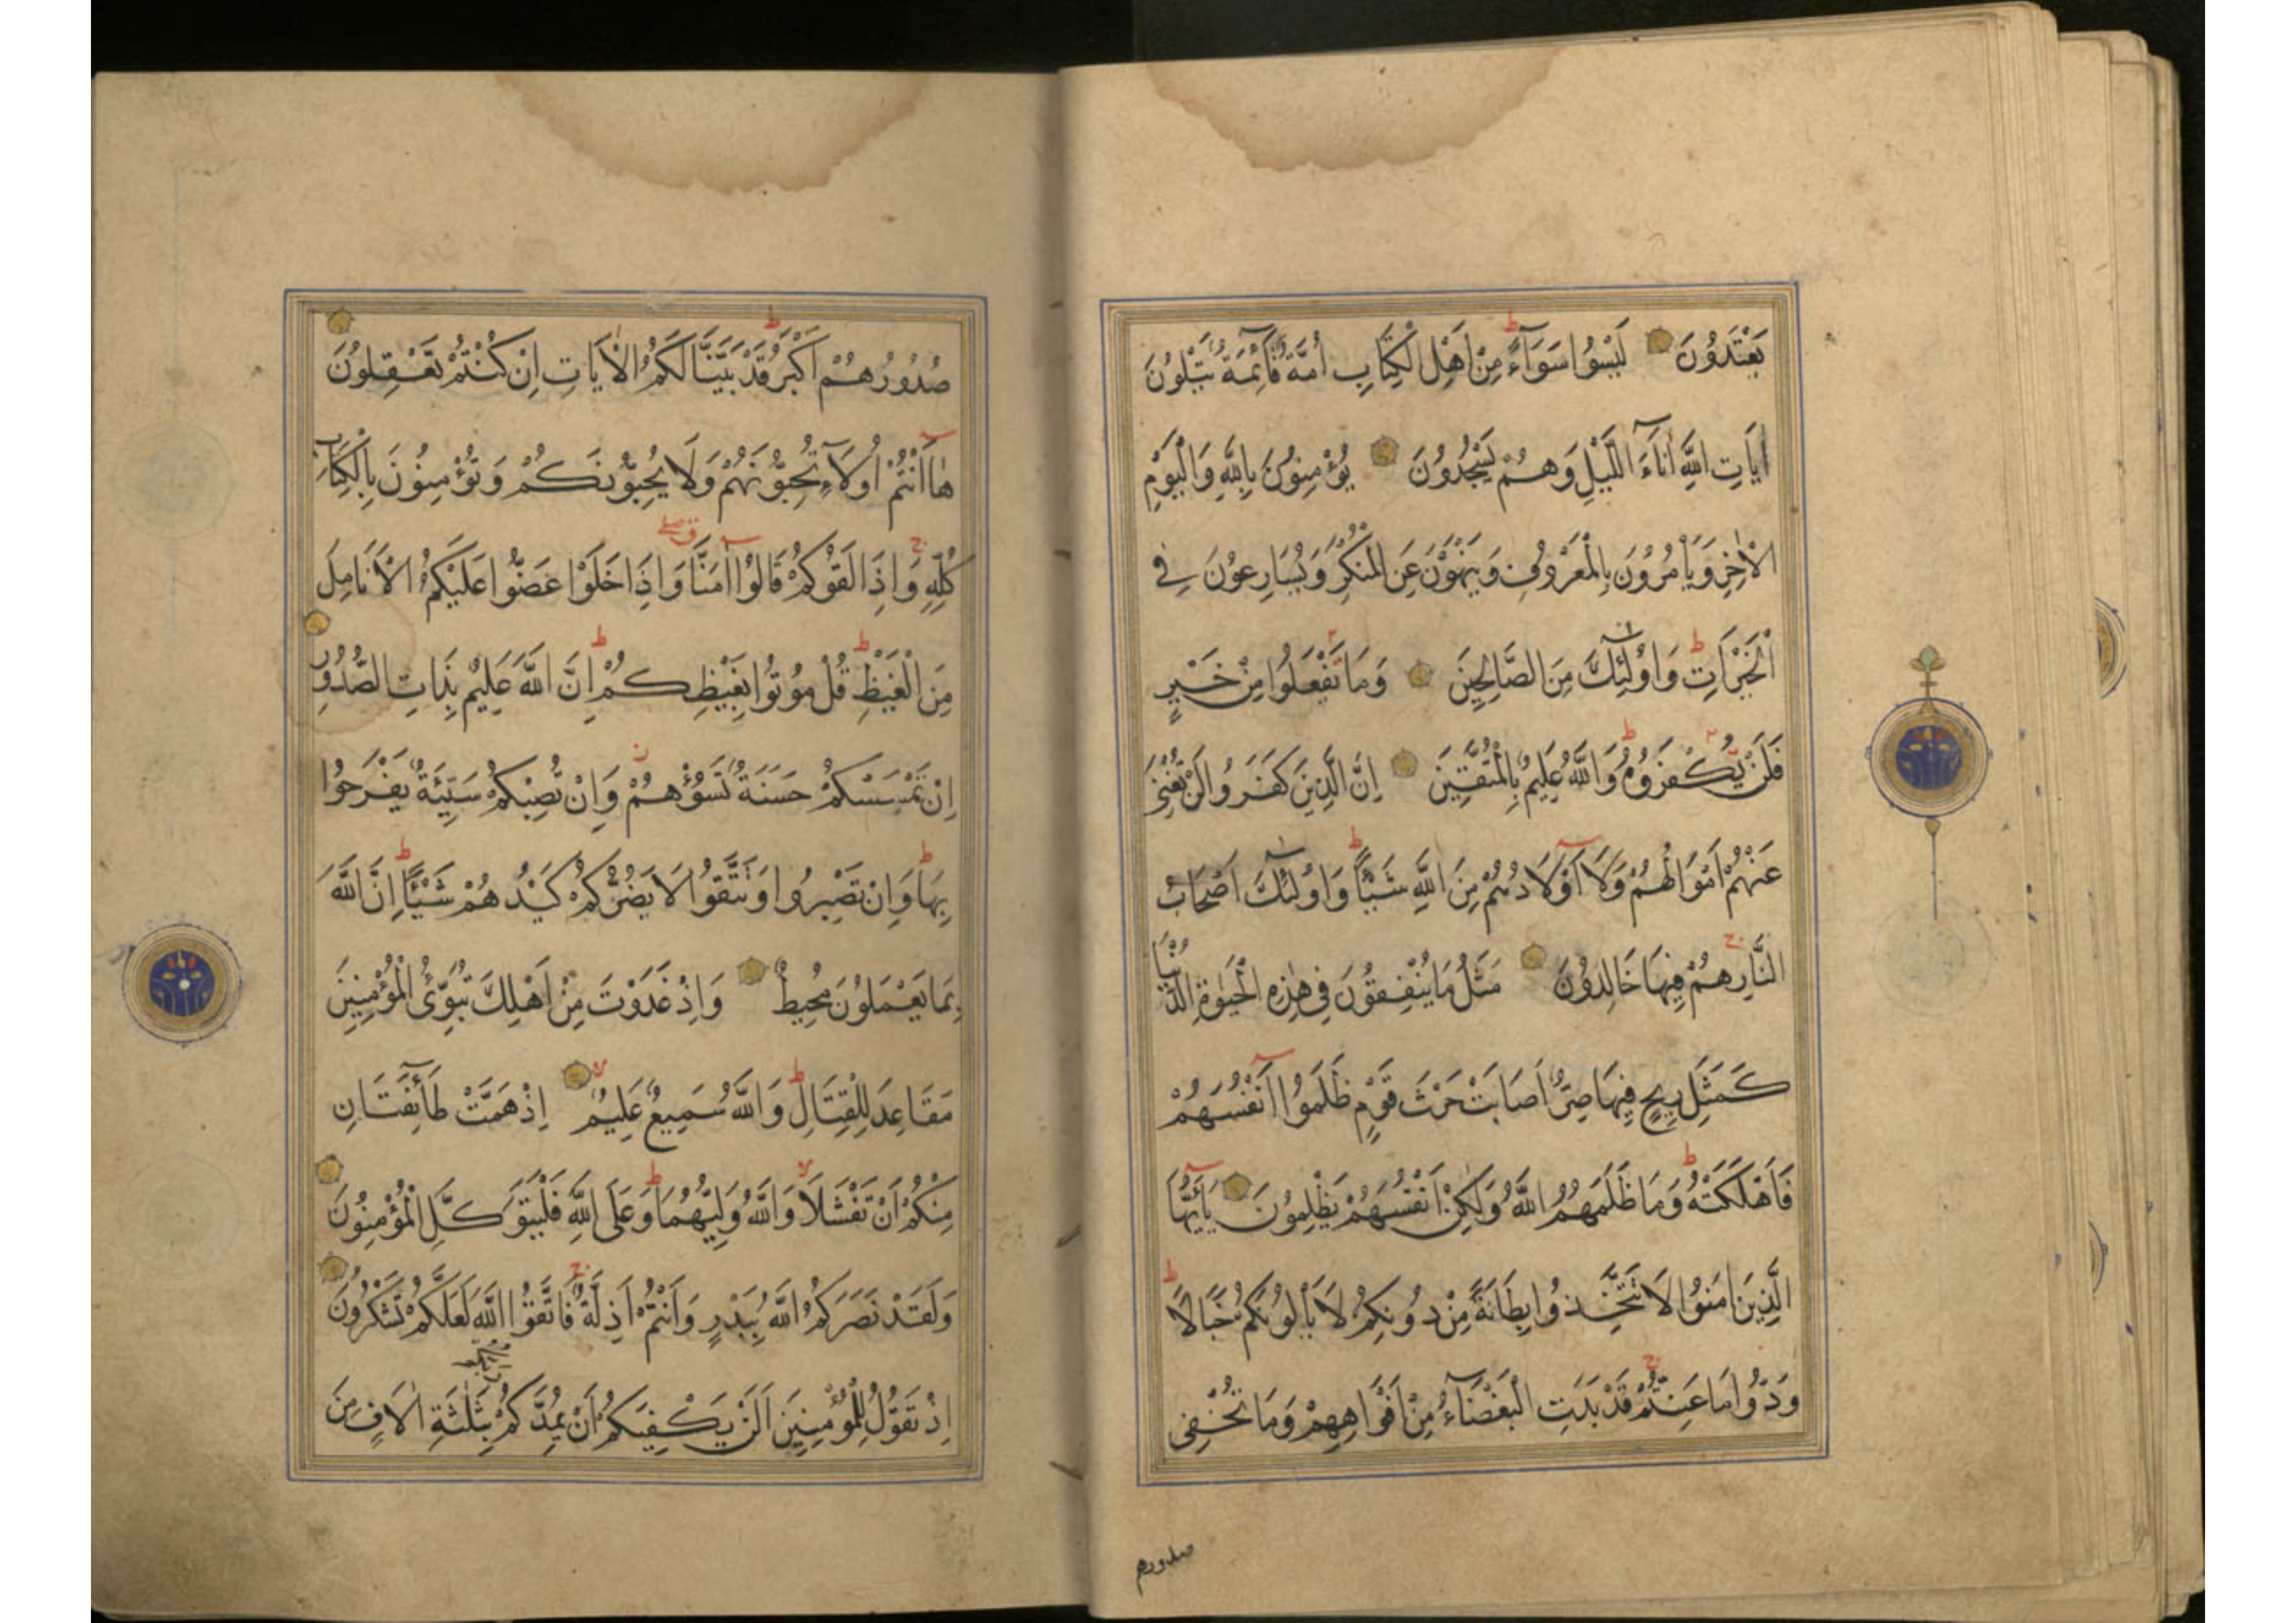 يَعْتَدُونَ لَيْسُوا سَوَآءً مِنْ اَهْلِ الْكِتَابِ اُمَّةٌ قَآئِمَةٌ يَتْلُونَ
اٰيَاتِ اللّٰهِ اٰنَآءَ اللَّيْلِ وَهُمْ يَسْجُدُونَ يُؤْمِنُونَ بِاللّٰهِ وَالْيَوْمِ
الْاٰخِرِ وَيَاْمُرُونَ بِالْمَعْرُوفِ وَيَنْهَوْنَ عَنِ الْمُنْكَرِ وَيُسَارِعُونَ فِي
الْخَيْرَاتِ وَاُولٰٓئِكَ مِنَ الصَّالِحِينَ وَمَا تَفْعَلُوا مِنْ خَيْرٍ
فَلَنْ يُكْفَرُوهُ وَاللّٰهُ عَلِيمٌ بِالْمُتَّقِينَ اِنَّ الَّذِينَ كَفَرُوا لَنْ تُغْنِيَ
عَنْهُمْ اَمْوَالُهُمْ وَلَآ اَوْلَادُهُمْ مِنَ اللّٰهِ شَيْئًا وَاُولٰٓئِكَ اَصْحَابُ
النَّارِ هُمْ فِيهَا خَالِدُونَ مَثَلُ مَا يُنْفِقُونَ فِي هٰذِهِ الْحَيٰوةِ الدُّنْيَا
كَمَثَلِ رِيحٍ فِيهَا صِرٌّ اَصَابَتْ حَرْثَ قَوْمٍ ظَلَمُوا اَنْفُسَهُمْ
فَاَهْلَكَتْهُ وَمَا ظَلَمَهُمُ اللّٰهُ وَلٰكِنْ اَنْفُسَهُمْ يَظْلِمُونَ يَآاَيُّهَا
الَّذِينَ اٰمَنُوا لَا تَتَّخِذُوا بِطَانَةً مِنْ دُونِكُمْ لَا يَاْلُونَكُمْ خَبَالًا
وَدُّوا مَا عَنِتُّمْ قَدْ بَدَتِ الْبَغْضَآءُ مِنْ اَفْوَاهِهِمْ وَمَا تُخْفِي
صدورهم
صُدُورُهُمْ اَكْبَرُ قَدْ بَيَّنَّا لَكُمُ الْاٰيَاتِ اِنْ كُنْتُمْ تَعْقِلُونَ
هَا اَنْتُمْ اُولَآءِ تُحِبُّونَهُمْ وَلَا يُحِبُّونَكُمْ وَتُؤْمِنُونَ بِالْكِتَابِ
كُلِّهِ وَاِذَا لَقُوكُمْ قَالُوا اٰمَنَّا وَاِذَا خَلَوْا عَضُّوا عَلَيْكُمُ الْاَنَامِلَ
مِنَ الْغَيْظِ قُلْ مُوتُوا بِغَيْظِكُمْ اِنَّ اللّٰهَ عَلِيمٌ بِذَاتِ الصُّدُورِ
اِنْ تَمْسَسْكُمْ حَسَنَةٌ تَسُؤْهُمْ وَاِنْ تُصِبْكُمْ سَيِّئَةٌ يَفْرَحُوا
بِهَا وَاِنْ تَصْبِرُوا وَتَتَّقُوا لَا يَضُرُّكُمْ كَيْدُهُمْ شَيْئًا اِنَّ اللّٰهَ
بِمَا يَعْمَلُونَ مُحِيطٌ وَاِذْ غَدَوْتَ مِنْ اَهْلِكَ تُبَوِّئُ الْمُؤْمِنِينَ
مَقَاعِدَ لِلْقِتَالِ وَاللّٰهُ سَمِيعٌ عَلِيمٌ اِذْ هَمَّتْ طَآئِفَتَانِ
مِنْكُمْ اَنْ تَفْشَلَا وَاللّٰهُ وَلِيُّهُمَا وَعَلَى اللّٰهِ فَلْيَتَوَكَّلِ الْمُؤْمِنُونَ
وَلَقَدْ نَصَرَكُمُ اللّٰهُ بِبَدْرٍ وَاَنْتُمْ اَذِلَّةٌ فَاتَّقُوا اللّٰهَ لَعَلَّكُمْ تَشْكُرُونَ
اِذْ تَقُولُ لِلْمُؤْمِنِينَ اَلَنْ يَكْفِيَكُمْ اَنْ يُمِدَّكُمْ بِثَلٰثَةِ اٰلَافٍ مِنَ